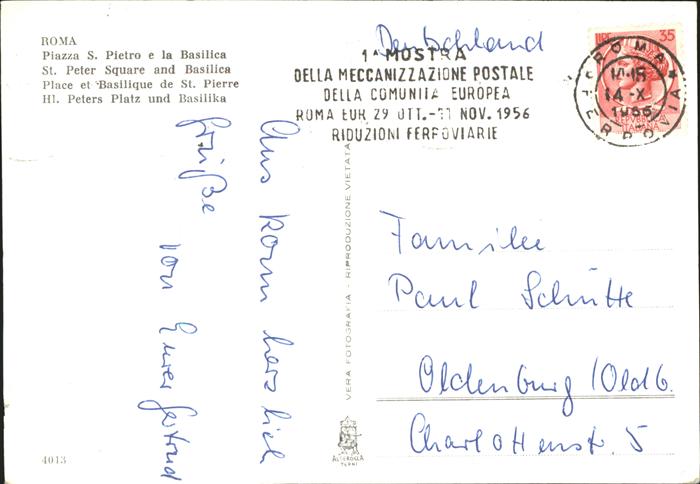 ROMA
Piazza S. Pietro e la Basilica
St. Peter Square and Basilica
Place et Basilique de St. Pierre
Hl. Peters Platz und Basilika
Aus Rom herzlich
Grüße
von Eurer Gertrud
4013
VERA FOTOGRAFIA - RIPRODUZIONE VIETATA
ALTEROCCA
TERNI
Deutschland
1ª MOSTRA
DELLA MECCANIZZAZIONE POSTALE
DELLA COMUNITÀ EUROPEA
ROMA EUR 29 OTT.-11 NOV. 1956
RIDUZIONI FERROVIARIE
ROMA
FERROVIA
14-X
1956
LIRE 35
REPUBBLICA
ITALIANA
Familie
Paul Schütte
Oldenburg /Oldb.
Charlottenstr. 5